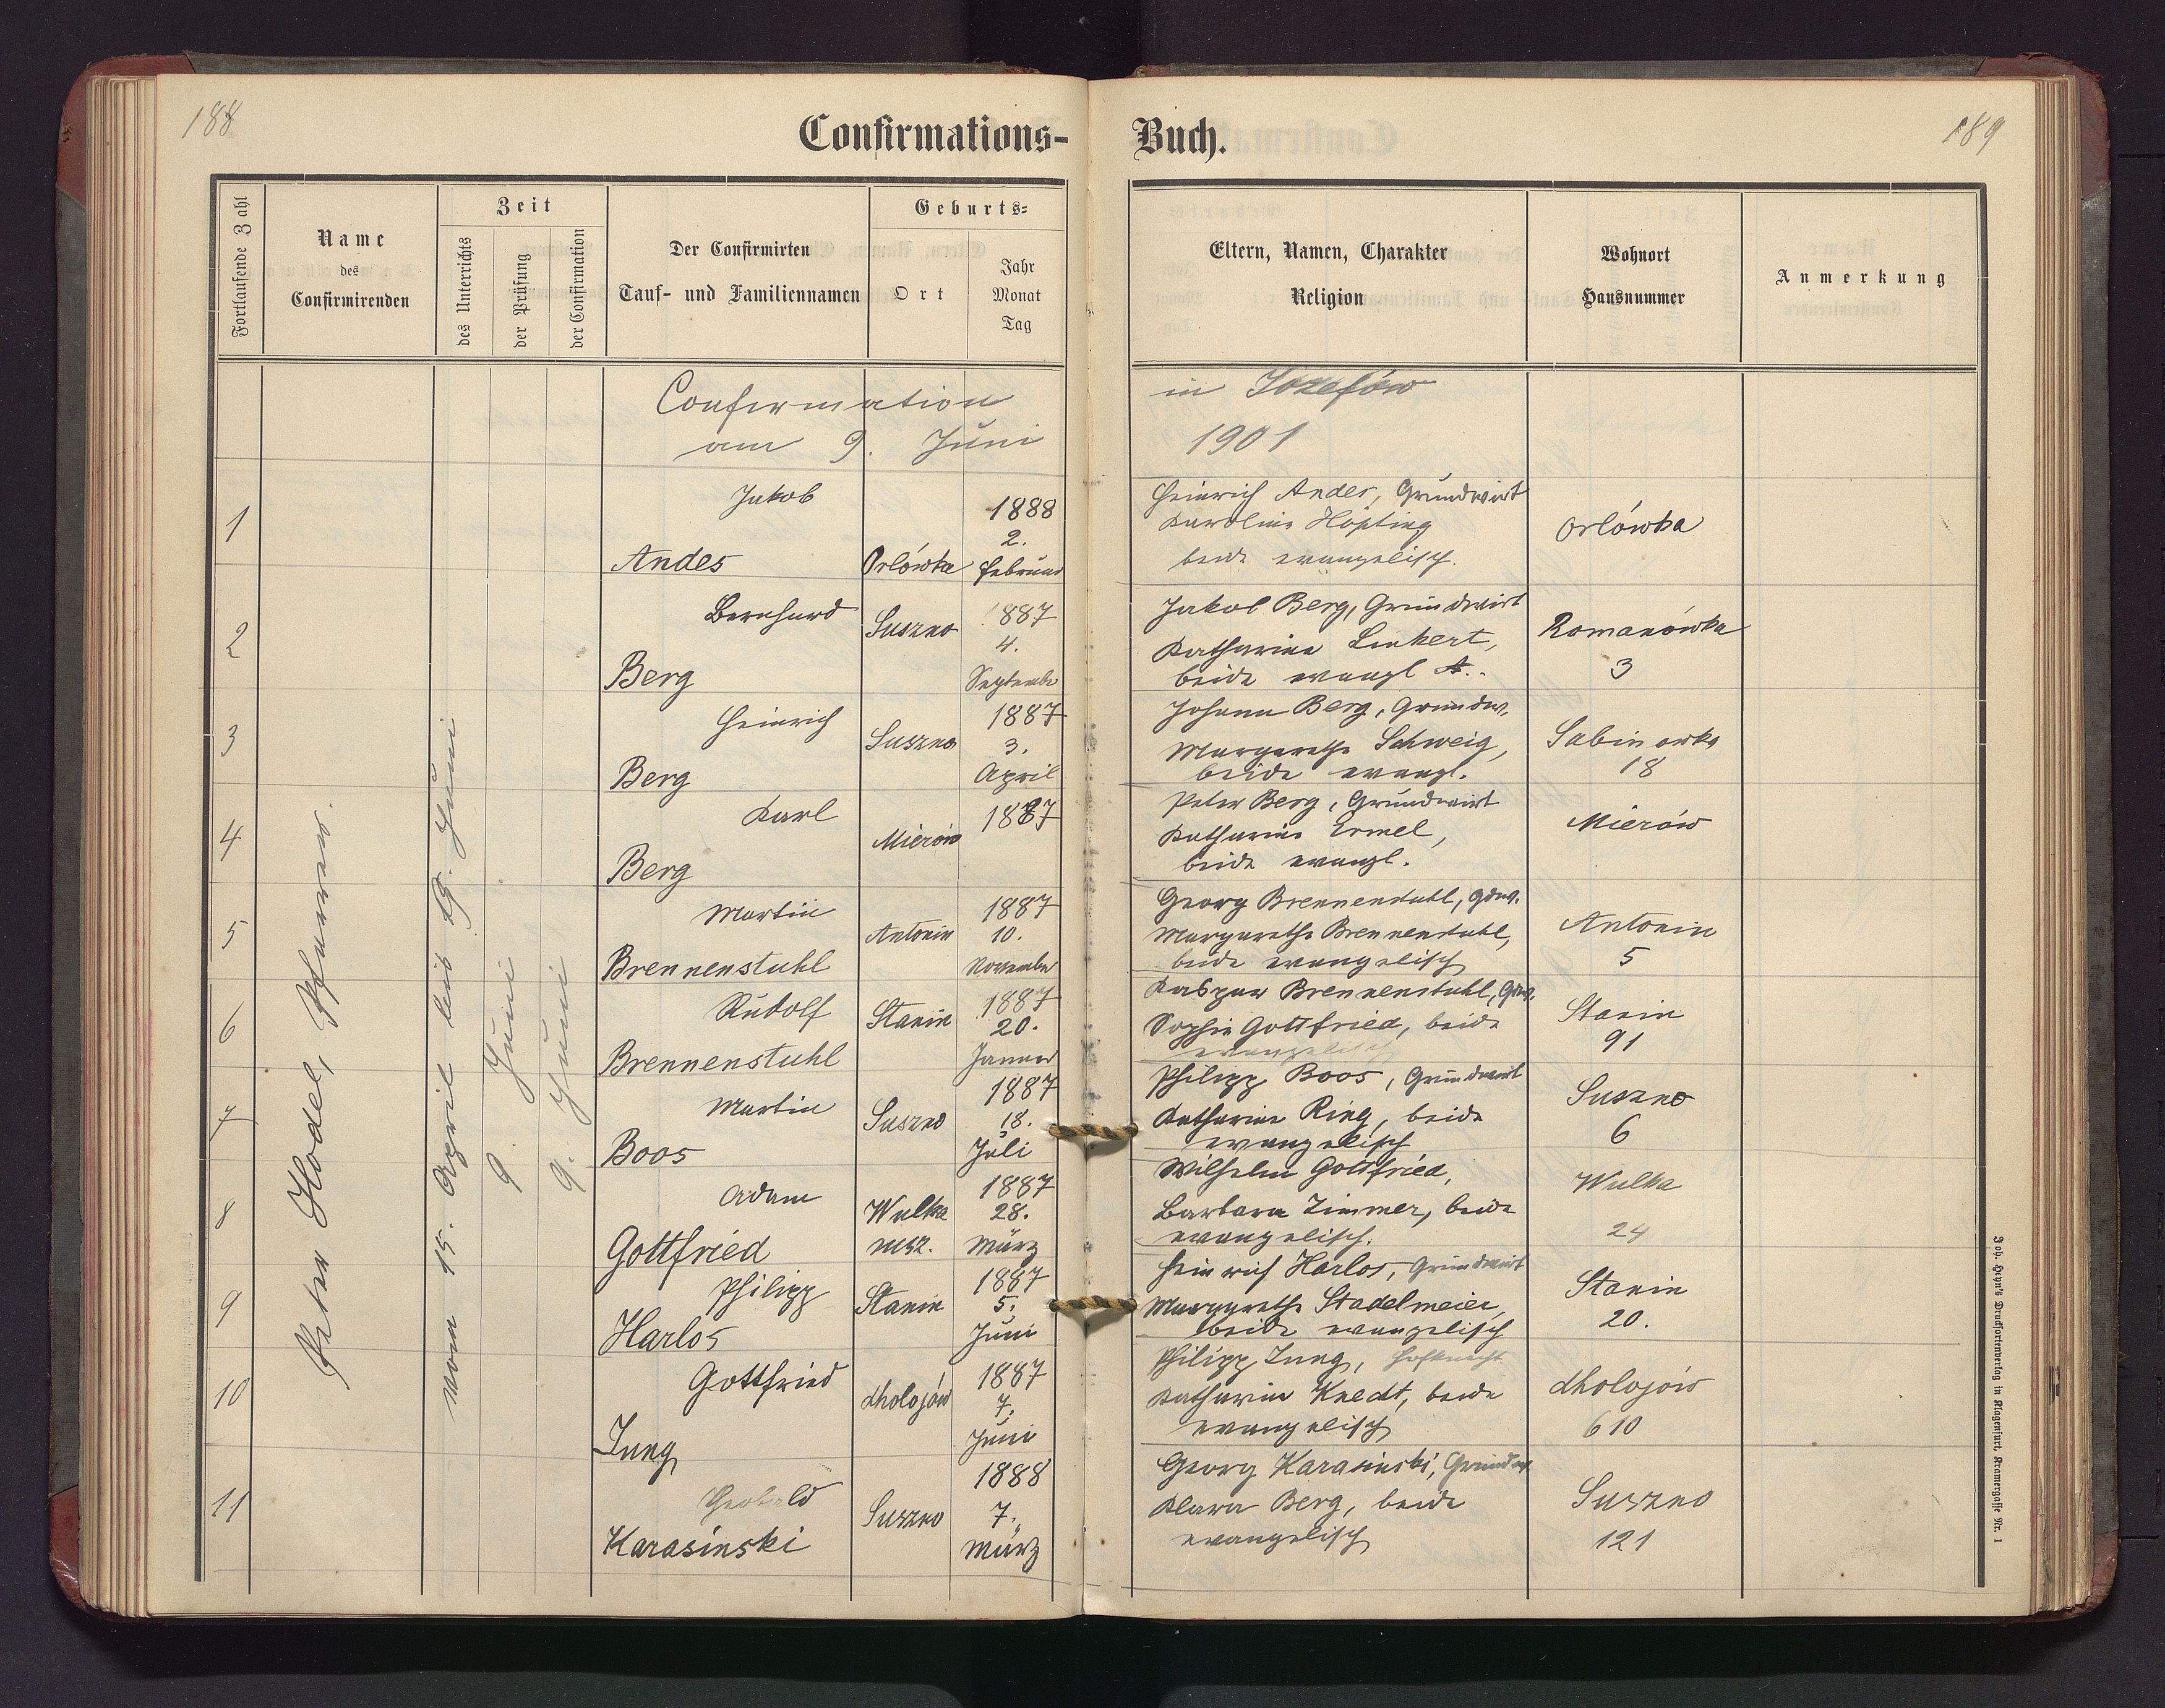 188
189
Confirmations-
Buch.
Fortlaufende Zahl
Name
des
Confirmirenden
Zeit
des Unterrichts
der Prüfung
der Confirmation
Der Confirmirten
Tauf- und Familiennamen
Geburts-
Ort
Jahr
Monat
Tag
Eltern, Namen, Charakter
Religion
Wohnort
Hausnummer
Anmerkung
Confirmation
in Józefów
am 9. Juni
1901
Peter Hodel, Pfarrer.
vom 15. April bis 9. Juni
9. Juni
9. Juni
1
Jakob
Andes
Orlówka
1888
2.
Februar
Heinrich Andes, Grundwirt
Karoline Höpting
beide evangelisch.
Orlówka
2
Bernhard
Berg
Suszno
1887
4.
September
Jakob Berg, Grundwirt
Katharina Linkert,
beide evangl A..
Romanówka
3
3
Heinrich
Berg
Suszno
1887
3.
April
Johann Berg, Grundw.
Margarethe Schweig,
beide evangl.
Sabinowka
18
4
Karl
Berg
Mierów
1887
Peter Berg, Grundwirt
Katharina Ermel,
beide evangl.
Mierów
5
Martin
Brennenstuhl
Antonin
1887
10.
November
Georg Brennenstuhl, Gdw.
Margarethe Brennenstuhl,
beide evangelisch
Antonin
5
6
Rudolf
Brennenstuhl
Stanin
1887
20.
Januar
Kaspar Brennenstuhl, Gdw.
Sophia Gottfried, beide
evangelisch
Stanin
91
7
Martin
Boos
Suszno
1887
18.
Juli
Philipp Boos, Grundwirt
Katharina Ring, beide
evangelisch
Suszno
6
8
Adam
Gottfried
Wulka
msz.
1887
28.
März
Wilhelm Gottfried,
Barbara Zimmer, beide
evangelisch.
Wulka
24
9
Philipp
Harlos
Stanin
1887
5.
Juni
Heinrich Harlos, Grundwirt
Margarethe Stadelmeier,
beide evangelisch
Stanin
20.
10
Gottfried
Jung
Chołojów
1887
7.
Juni
Philipp Jung, Hofknecht
Katharina Knedt, beide
evangelisch
Chołojów
610
11
Karasinski
Suszno
1888
7.
März
Georg Karasinski, Grundw.
Klara Berg, beide
evangelisch
Suszno
121
Joh. Heyn's Drucksortenverlag in Klagenfurt, Kramergasse Nr. 1